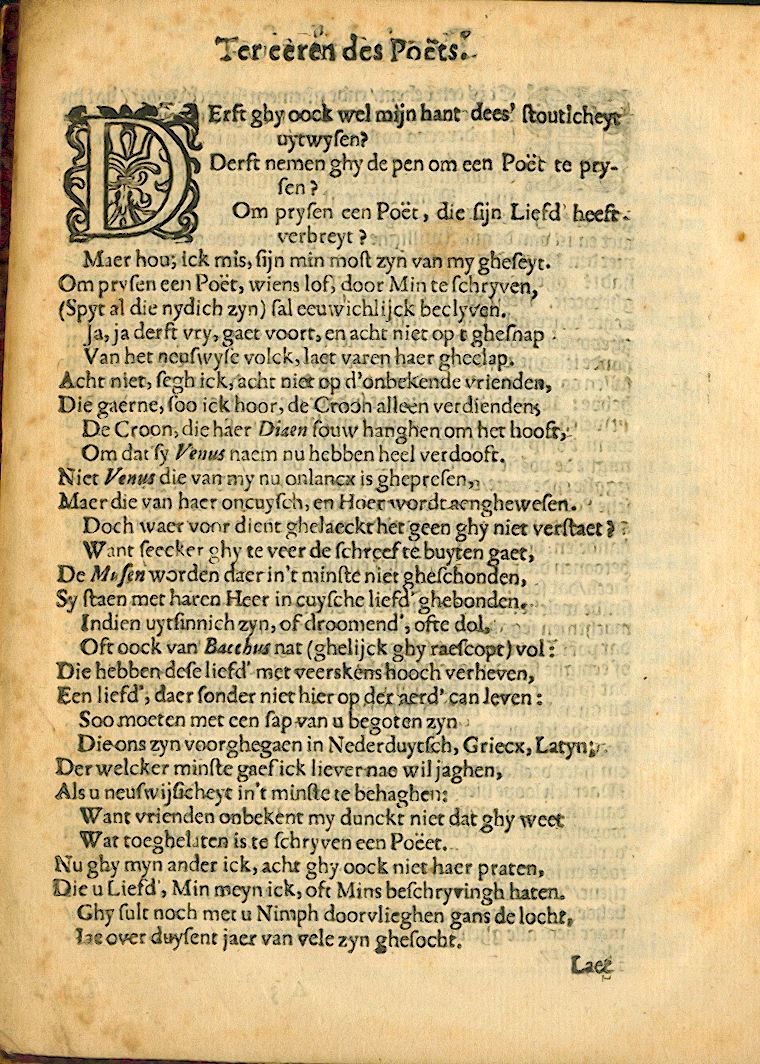 Ter eeren des Poëts.
DErst ghy oock wel mijn hant dees' stouticheyt
uytwysen?
Derst nemen ghy de pen om een Poët te pry-
sen?
Om prysen een Poët, die sijn Liefd' heeft
verbreyt?
Maer hou; ick mis, sijn min most zyn van my gheseyt.
Om prysen een Poët, wiens lof, door Min te schryven,
(Spyt al die nydich zyn) sal eeuwichlijck beclyven.
Ja, ja derst vry, gaet voort, en acht niet op t ghesnap
Van het neuswyse volck, laet varen haer gheclap.
Acht niet, segh ick, acht niet op d'onbekende vrienden,
Die gaerne, soo ick hoor, de Croon alleen verdienden;
De Croon, die haer Diaen souw hanghen om het hooft,
Om dat sy Venus naem nu hebben heel verdooft.
Niet Venus die van my nu onlancx is ghepresen,
Maer die van haer oncuysch, en Hoer wordt aenghewesen.
Doch waer voor dient ghelaeckt het geen ghy niet verstaet?
Want seecker ghy te veer de schreef te buyten gaet,
De Musen worden daer in't minste niet gheschonden,
Sy staen met haren Heer in cuysche liefd' ghebonden.
Indien uytsinnich zyn, of droomend', ofte dol,
Oft oock van Bacchus nat (ghelijck ghy raescopt) vol:
Die hebben dese liefd' met veerskens hooch verheven,
Een liefd', daer sonder niet hier op der aerd' can leven:
Soo moeten met een sap van u begoten zyn
Die ons zyn voorghegaen in Nederduytsch, Griecx, Latyn;
Der welcker minste gaef ick liever nae wil jaghen,
Als u neuswijsicheyt in't minste te behaghen:
Want vrienden onbekent my dunckt niet dat ghy weet
Wat toeghelaten is te schryven een Poëet.
Nu ghy myn ander ick, acht ghy oock niet haer praten,
Die u Liefd', Min meyn ick, oft Mins beschryvingh haten.
Ghy sult noch met u Nimph doorvlieghen gans de locht,
Iae over duysent jaer van vele zyn ghesocht.
Laet